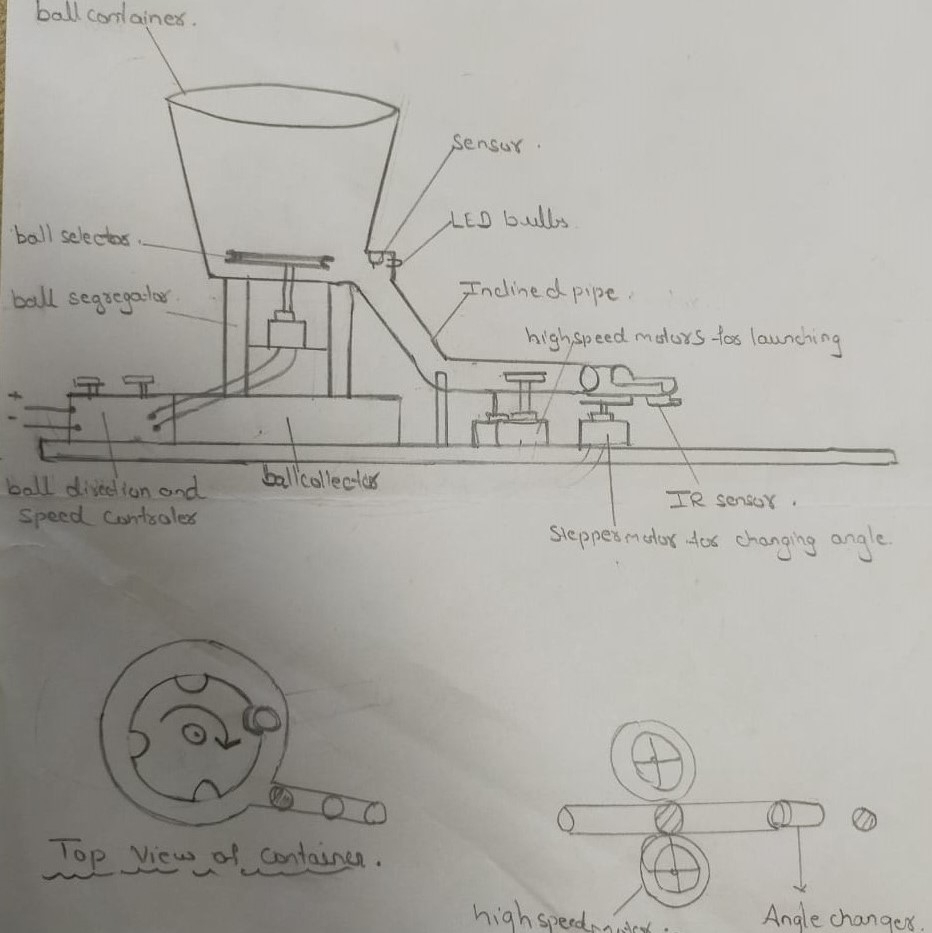 ball container.
sensor.
LED bulbs
ball selector.
ball segregator.
Inclined pipe.
highspeed motors for launching
+
-
ball direction and
speed Controler
ballcollector
IR sensor.
Steppermotor for changing angle.
Top View of Container.
highspeedmotor.
Angle changer.